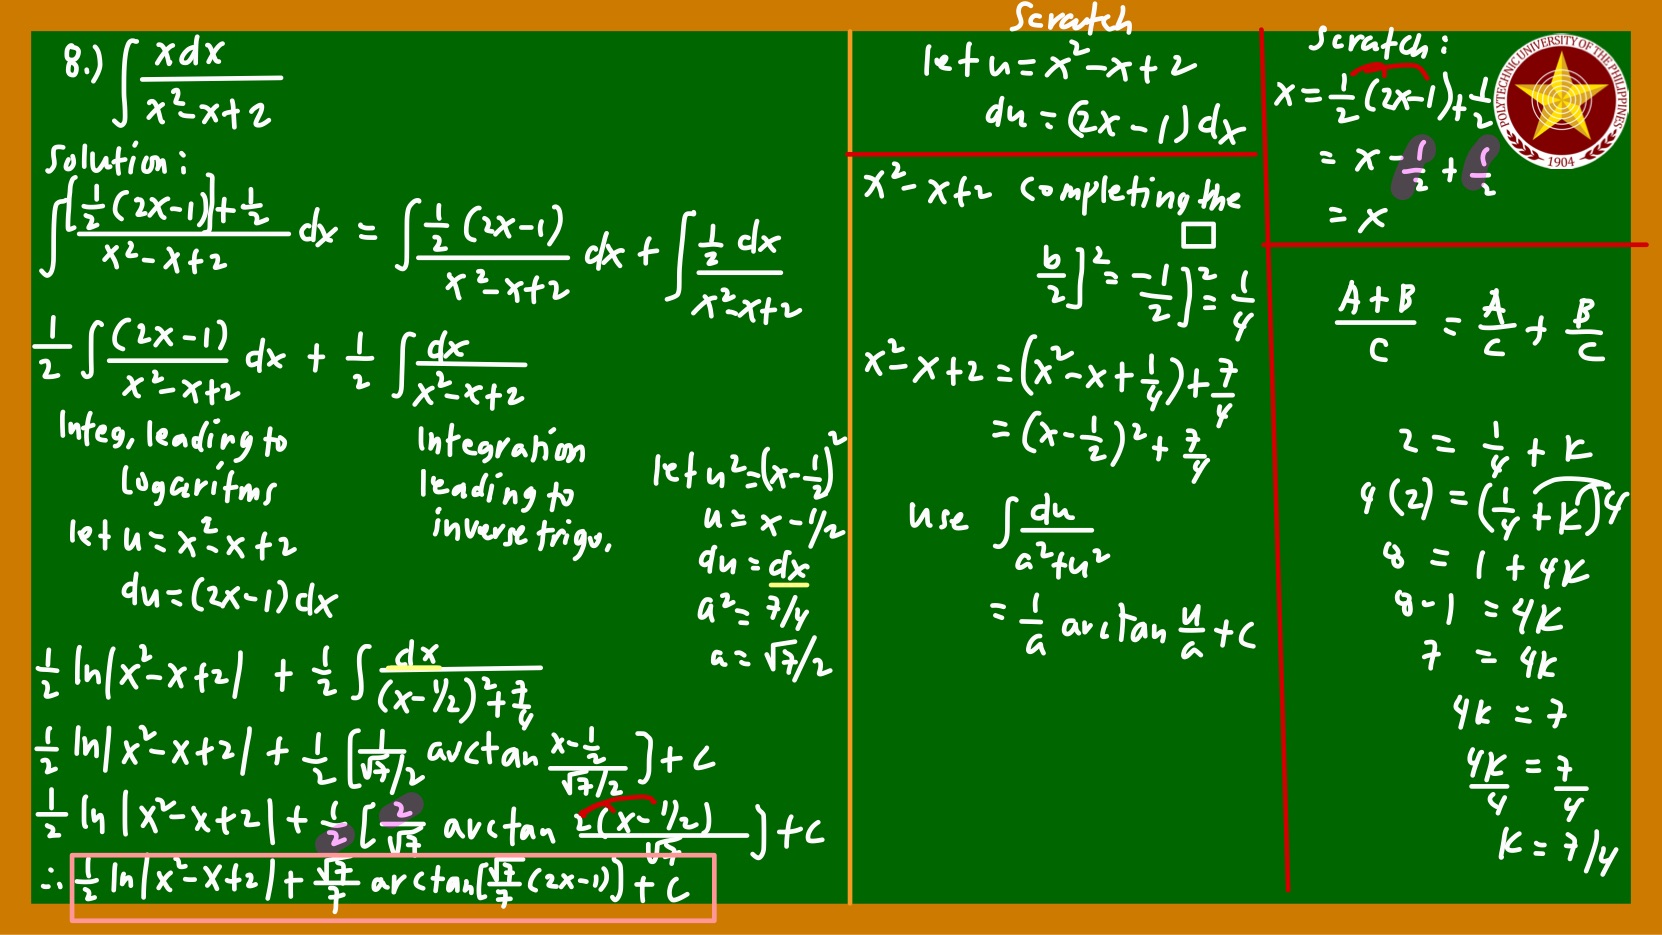 8.) ∫ xdx / x²-x+2
Solution:
∫ [½(2x-1)]+½ / x²-x+2 dx = ∫ ½(2x-1) / x²-x+2 dx + ∫ ½ dx / x²-x+2
½ ∫ (2x-1) / x²-x+2 dx + ½ ∫ dx / x²-x+2
Integ, leading to
Logaritms
let u = x²-x+2
du = (2x-1) dx
Integration
leading to
inverse trigo.
let u² = (x-½)²
u = x - 1/2
du = dx
a² = 7/4
a = √7/2
½ ln|x²-x+2| + ½ ∫ dx / (x-1/2)²+7/4
½ ln|x²-x+2| + ½ [1 / √7/2 arctan x-½ / √7/2] + C
½ ln|x²-x+2| + ½ [2/√7 arctan 2(x-1/2) / √7] + C
∴ ½ ln|x²-x+2| + √7/7 arctan[√7/7 (2x-1)] + C
Scratch
let u = x²-x+2
du = (2x-1) dx
x²-x+2 completing the □
b/2]² = -1/2]² = 1/4
x²-x+2 = (x²-x+¼)+7/4
= (x-½)² + 7/4
use ∫ du / a²+u²
= 1/a arctan u/a + C
Scratch:
x = ½(2x-1)+½
= x - ½ + ½
= x
A+B / C = A/C + B/C
2 = ¼ + K
4(2) = (¼ + K)4
8 = 1 + 4K
8-1 = 4K
7 = 4K
4K = 7
4K/4 = 7/4
K = 7/4
POLYTECHNIC UNIVERSITY OF THE PHILIPPINES
1904